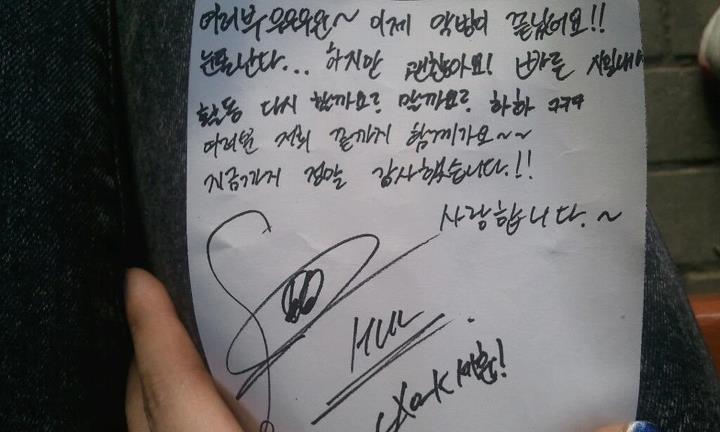 여러부우우우운~ 이제 막방이 끝났어요!!
눈물난다... 하지만 괜찮아요!
활동 다시 할까요? 말까요? 하하 ㅋㅋㅋ
여러분 저희 끝까지 함께가요~~
지금까지 정말 감사했습니다.!!
사랑합니다.~